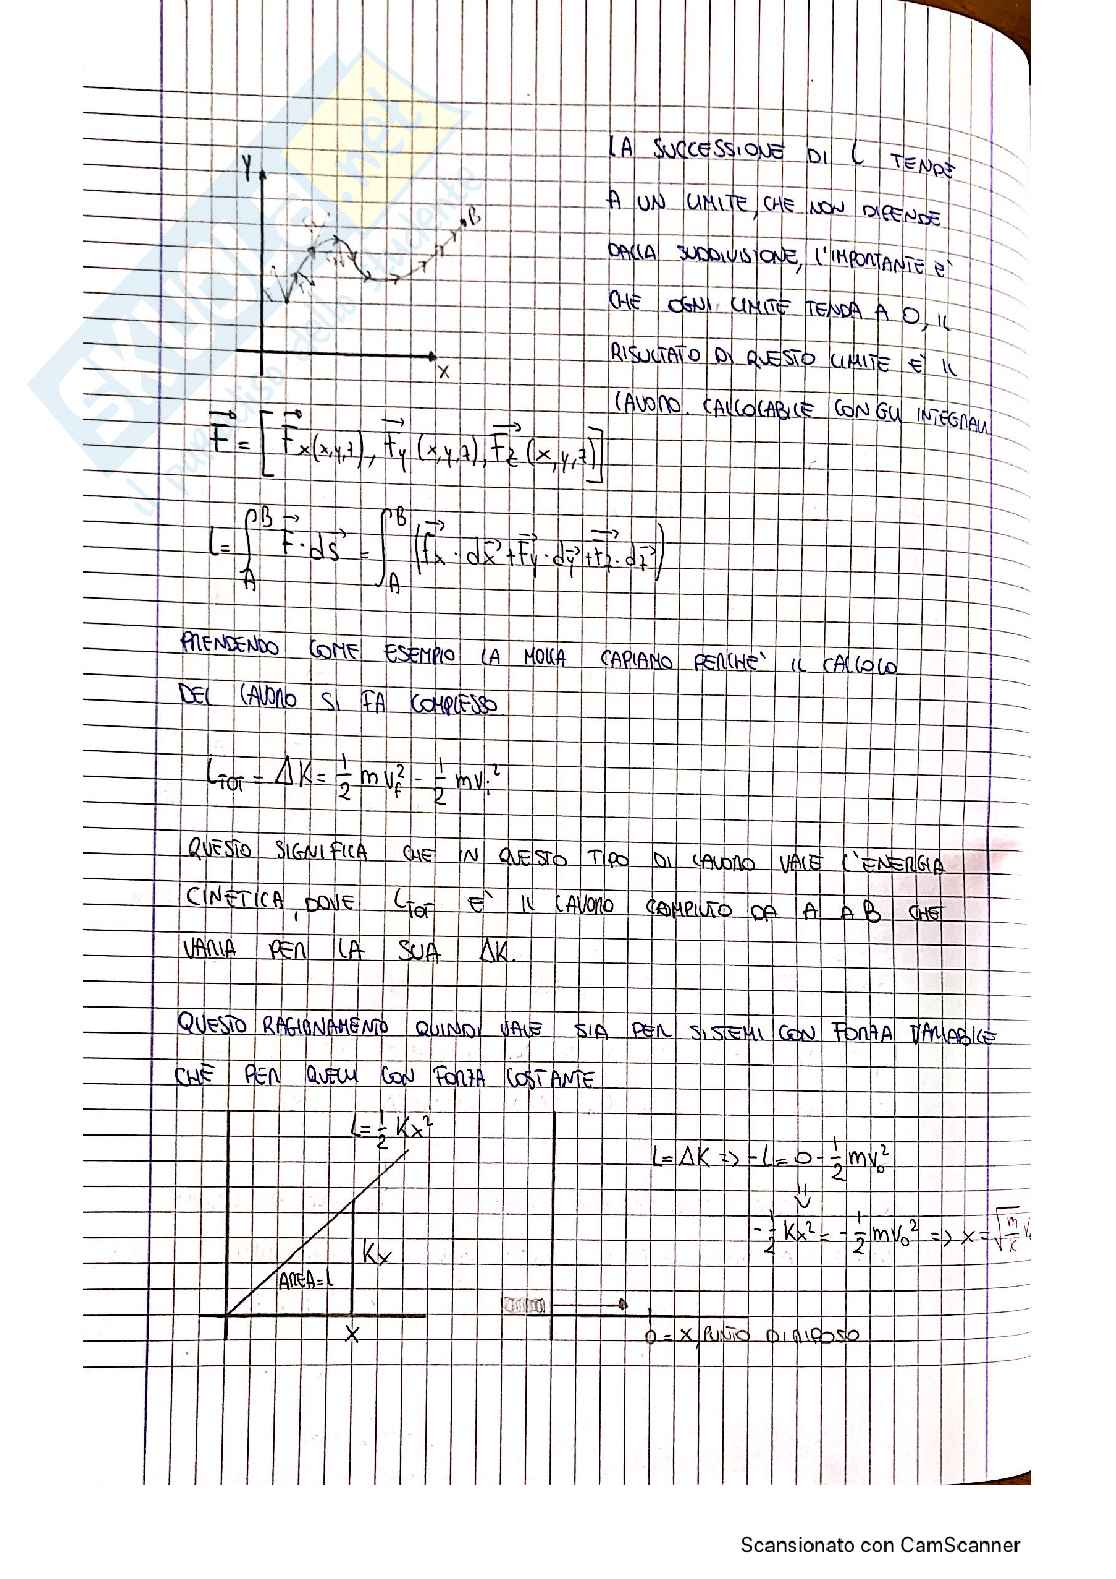 LA SUCCESSIONE DI L TENDE
A UN LIMITE, CHE NON DIPENDE
DALLA SUDDIVISIONE, L'IMPORTANTE E'
CHE OGNI LIMITE TENDA A 0, IL
RISULTATO DI QUESTO LIMITE E' IL
LAVORO. CALCOLABILE CON GLI INTEGRALI
Y
B
X
F = [Fx(x,y,z), Fy(x,y,z), Fz(x,y,z)]
L = ∫_A^B F · ds = ∫_A^B (Fx · dx + Fy · dy + Fz · dz)
PRENDENDO COME ESEMPIO LA MOLLA CAPIAMO PERCHE' IL CALCOLO
DEL LAVORO SI FA COMPLESSO
L_TOT = ΔK = 1/2 m v_f² - 1/2 m v_i²
QUESTO SIGNIFICA CHE IN QUESTO TIPO DI LAVORO VALE L'ENERGIA
CINETICA, DOVE L_TOT E' IL LAVORO COMPIUTO DA A A B CHE
VARIA PER LA SUA ΔK.
QUESTO RAGIONAMENTO QUINDI VALE SIA PER SISTEMI CON FORZA VARIABILE
CHE PER QUELLI CON FORZA COSTANTE
L = 1/2 Kx²
Kx
AREA = L
X
L = ΔK => -L = 0 - 1/2 m v_0²
-1/2 Kx² = -1/2 m v_0² => x = √(m/K) v
0 = X PUNTO DI RIPOSO
Skuola.net
il paradiso dello studente
Scansionato con CamScanner